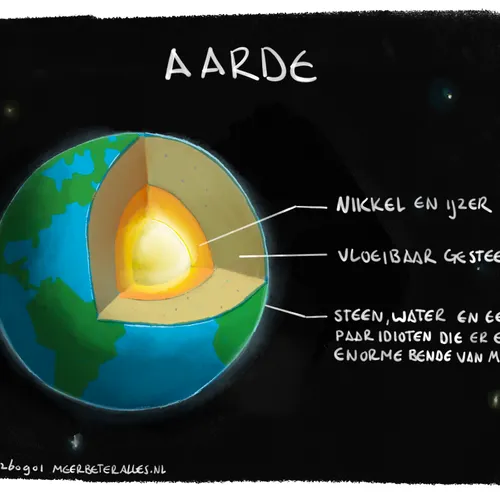 AARDE
NIKKEL EN IJZER
VLOEIBAAR GESTEE
STEEN, WATER EN EE
PAAR IDIOTEN DIE ER E
ENORME BENDE VAN M
260901 MEERBETERALLES.NL